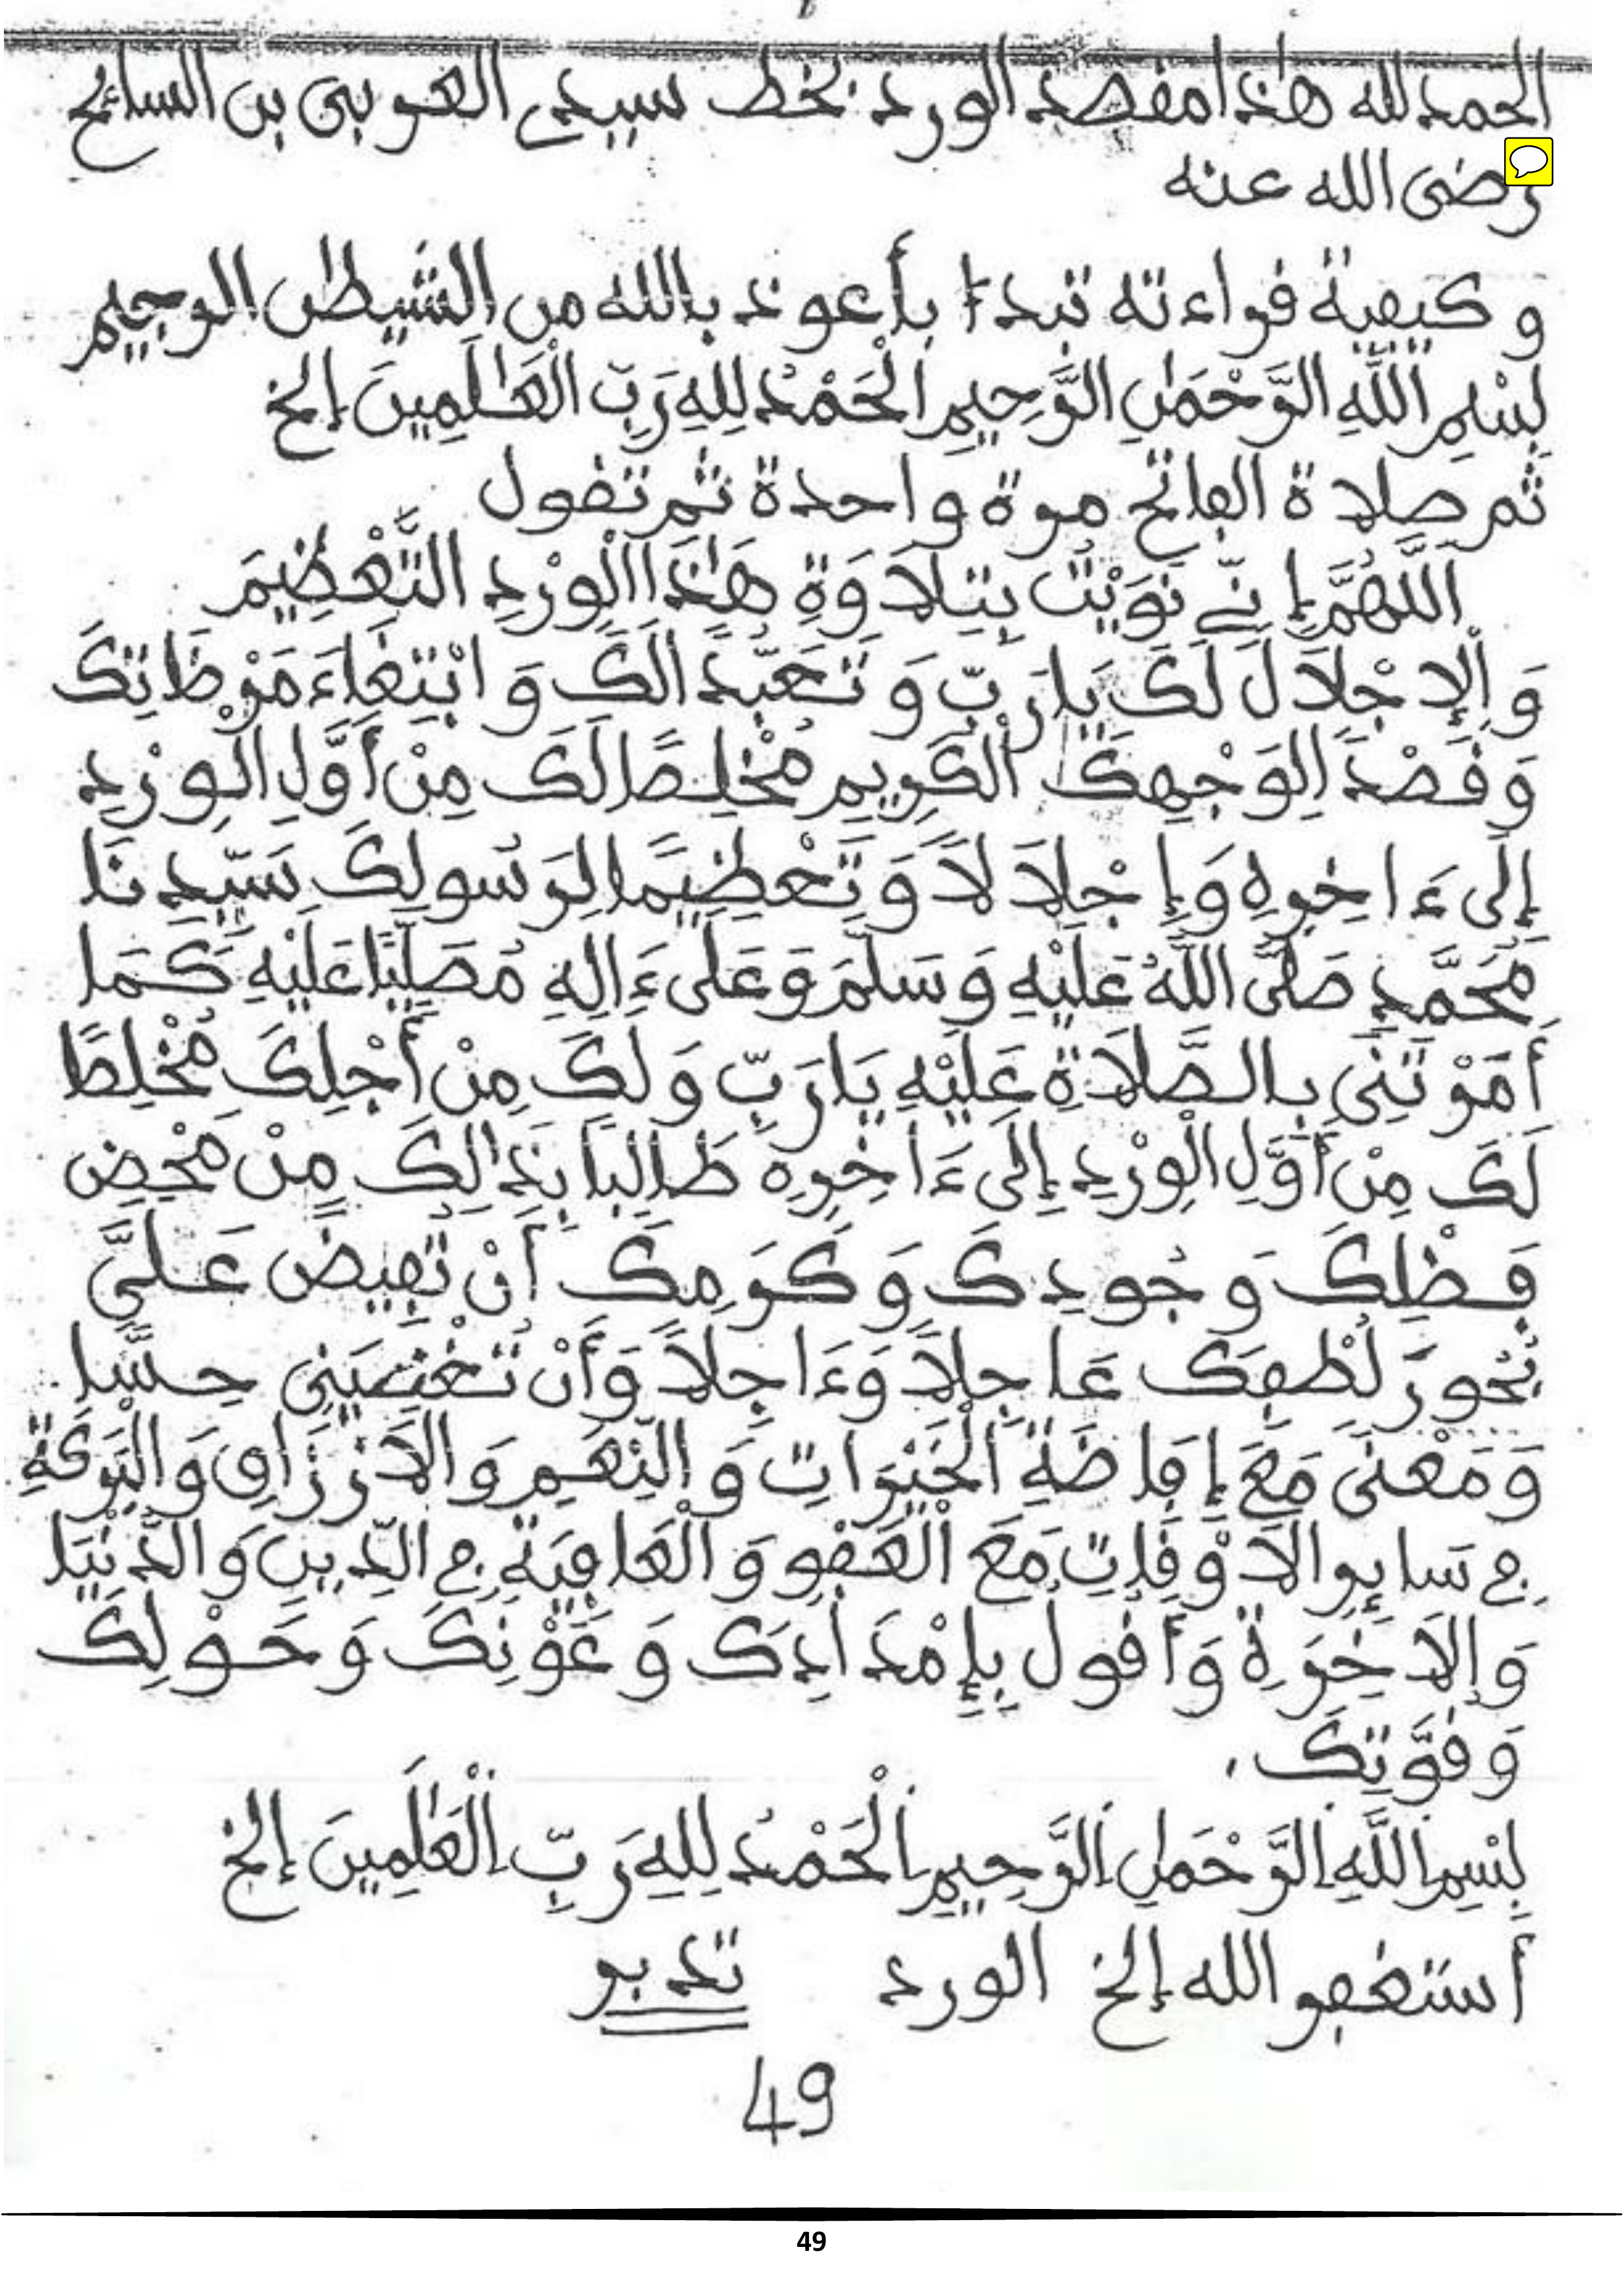 الحمد لله هذا مقصد الورد بخط سيدي العربي بن السائح
رضى الله عنه
و كيفية قراءته تبدءا بأعوذ بالله من الشيطن الرجيم
بِسْمِ اللَّهِ الرَّحْمَٰنِ الرَّحِيمِ الْحَمْدُ لِلهِ رَبِّ الْعَٰلَمِينَ إلخ
ثم صلاة الفاتح مرة واحدة ثم تقول
اَللَّهُمَّ إِنِّي نَوَيْتُ بِتِلَاوَةِ هَٰذَا الْوِرْدِ التَّعْظِيمَ
وَالْإِجْلَالَ لَكَ يَا رَبِّ وَتَعَبُّدًا لَكَ وَابْتِغَاءَ مَرْضَاتِكَ
وَقَصْدًا لِوَجْهِكَ الْكَرِيمِ مُخْلِصًا لَكَ مِنْ أَوَّلِ الْوِرْدِ
إِلَى ءَاخِرِهِ وَإِجْلَالًا وَتَعْظِيمًا لِرَسُولِكَ سَيِّدِنَا
مُحَمَّدٍ صَلَّى اللَّهُ عَلَيْهِ وَسَلَّمَ وَعَلَى ءَالِهِ مُصَلِّيًا عَلَيْهِ كَمَا
أَمَرْتَنِي بِالصَّلَاةِ عَلَيْهِ يَا رَبِّ وَلَكَ مِنْ أَجْلِكَ مُخْلِصًا
لَكَ مِنْ أَوَّلِ الْوِرْدِ إِلَى ءَاخِرِهِ طَالِبًا بِذَٰلِكَ مِنْ مَحْضِ
فَضْلِكَ وَجُودِكَ وَكَرَمِكَ أَنْ تُفِيضَ عَلَيَّ
بُحُورَ لُطْفِكَ عَاجِلًا وَءَاجِلًا وَأَنْ تُغْنِيَنِي حِسًّا
وَمَعْنًى مَعَ إِفَاضَةِ الْخَيْرَاتِ وَالنِّعَمِ وَالْأَرْزَاقِ وَالْبَرَكَةِ
فِي سَائِرِ الْأَوْقَاتِ مَعَ الْعَفْوِ وَالْعَافِيَةِ فِي الدِّينِ وَالدُّنْيَا
وَالْأَخِرَةِ وَأَقُولُ بِإِمْدَادِكَ وَعَوْنِكَ وَحَوْلِكَ
وَقُوَّتِكَ،
بِسْمِ اللَّهِ الرَّحْمَٰنِ الرَّحِيمِ الْحَمْدُ لِلهِ رَبِّ الْعَٰلَمِينَ إلخ
أستغفر الله إلخ الورد تدبر
49
49